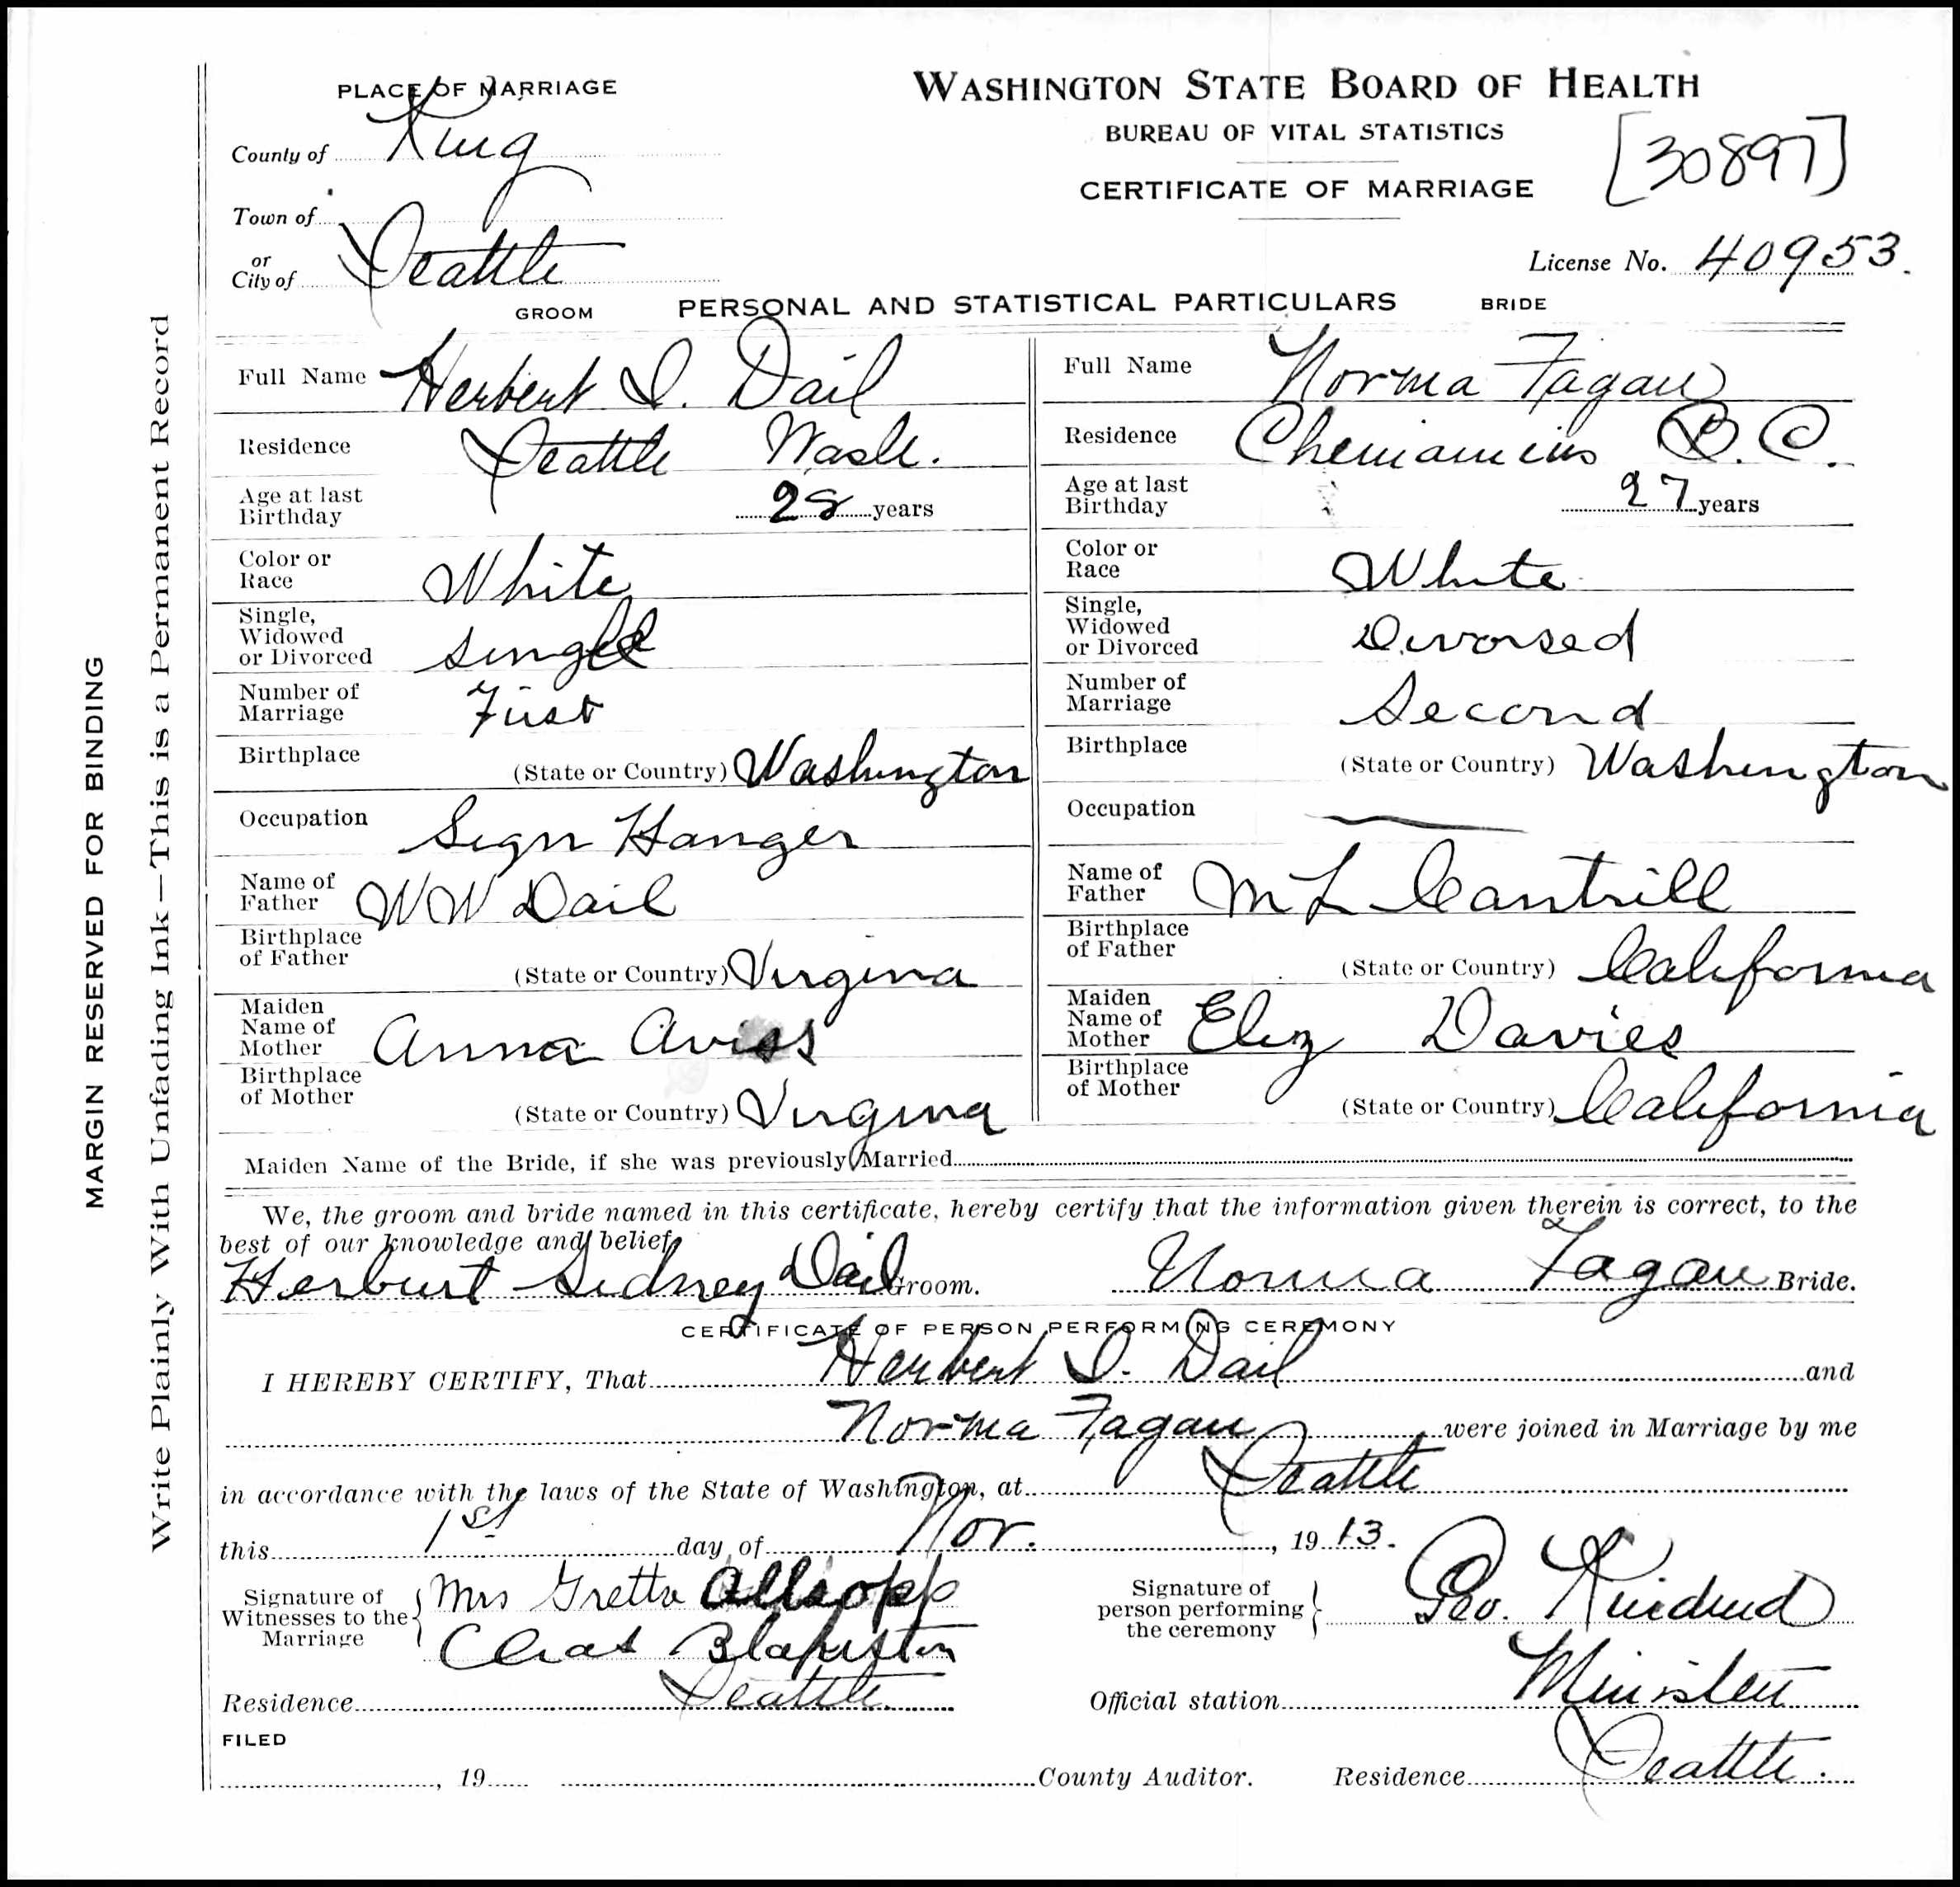 PLACE OF MARRIAGE
WASHINGTON STATE BOARD OF HEALTH
BUREAU OF VITAL STATISTICS
CERTIFICATE OF MARRIAGE
[30897]
County of King
Town of
or
City of Seattle
License No. 40953.
GROOM PERSONAL AND STATISTICAL PARTICULARS BRIDE
Full Name Herbert S. Dail
Residence Seattle Wash.
Age at last Birthday 28 years
Color or Race White
Single, Widowed or Divorced Single
Number of Marriage First
Birthplace (State or Country) Washington
Occupation Sign Hanger
Name of Father W W Dail
Birthplace of Father (State or Country) Virginia
Maiden Name of Mother Anna Aviss
Birthplace of Mother (State or Country) Virginia
Full Name Norma Fagan
Residence Chemainus B.C.
Age at last Birthday 27 years
Color or Race White
Single, Widowed or Divorced Divorsed
Number of Marriage Second
Birthplace (State or Country) Washington
Occupation
Name of Father M L Cantrill
Birthplace of Father (State or Country) California
Maiden Name of Mother Eliz Davies
Birthplace of Mother (State or Country) California
Maiden Name of the Bride, if she was previously Married
We, the groom and bride named in this certificate, hereby certify that the information given therein is correct, to the
best of our knowledge and belief
Herburt Sidney Dail Groom. Norma Fagan Bride.
CERTIFICATE OF PERSON PERFORMING CEREMONY
I HEREBY CERTIFY, That Herbert S. Dail and
Norma Fagan were joined in Marriage by me
in accordance with the laws of the State of Washington, at Seattle
this 1st day of Nov. , 19 13.
Signature of Witnesses to the Marriage Mrs Gretta Allsopp
Chas Blakiston
Residence Seattle
Signature of person performing the ceremony Geo. Kindred
Official station Minister
FILED
, 19 County Auditor. Residence Seattle.
MARGIN RESERVED FOR BINDING
Write Plainly With Unfading Ink—This is a Permanent Record